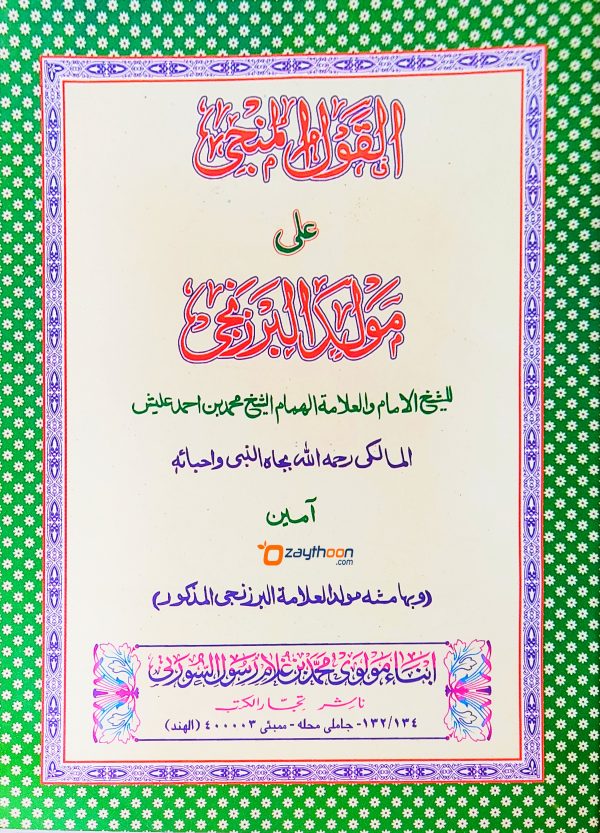 القول المنجي
على
مولد البرزنجي
للشيخ الامام والعلامة الهمام الشيخ محمد بن احمد عليش
المالكى رحمه الله بجاه النبى واحبائه
آمين
zaythoon
.com
(وبهامشه مولد العلامة البرزنجى المذكور)
ابناء مولوى محمد بن غلام رسول السورتى
ناشر تجار الكتب
١٣٢/١٣٤- جاملى محله - ممبئى ٤٠٠٠٠٣ (الهند)